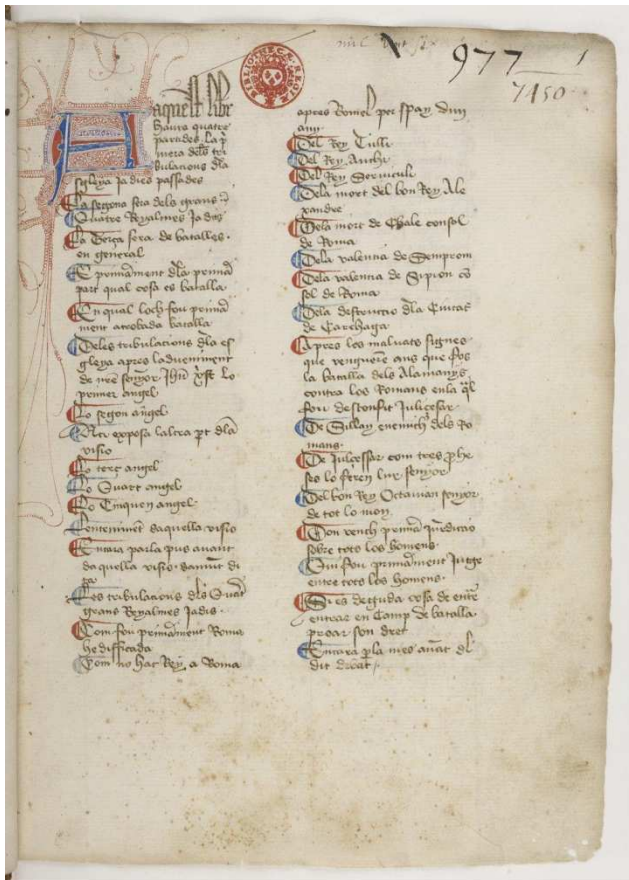 977
1
7450
BIBLIOTHECÆ REGIÆ
A aquest libre
haura quatre
partides la p
mera dels tri
bulacions dla
sgleya ja dies passades
La segona sera dels grans
Quatre Royalmes Jadis
La Terça sera de batalles
en general
E primament dla prima
part qual cosa es batalla
En qual loch fou prima
ment atrobada batalla
Deles tribulacions dla es
gleya apres ladveniment
de nre senyor Jhu xpst Lo
primer angel
Lo segon angel
Aci exposa laltra pt dla
visio
Lo terç angel
Lo Quart angel
Lo Cinquen angel
Lenteniment daquella visio
Encara parla pus avant
daquella visio
Les tribulacions dls Quat
grans Royalmes Jadis
Com fou primament Roma
hedifficada
Com no hac Rey a Roma
apres Romel per spay dun
any
Del Rey Tulli
Del Rey Anchi
Del Rey Servieuli
Dela mort del bon Rey Ale
xandre
Dela mort de Chale consol
de Roma
Dela valentia de Semprom
Dela valentia de Sipion co
sol de Roma
Dela destruccio dla Ciutat
de Carthaga
Apres los malvats signes
que vengueren ans que fos
la batalla dels Alamanys
contra los Romans enla ql
fou desconfit Julicesar
De Sillay enemich dels Ro
mans
De Julcessar com tres phe
ses lo feren lur senyor
Del bon Rey Octavian senyor
de tot lo mon
Don vench prima juridicio
sobre tots los homens
Qui fou primament Jutge
entre tots los homens
Si es deguda cosa de entre
entrar en Camp de batalla
proar son dret
Encara pla mes avat dl
dit dreat